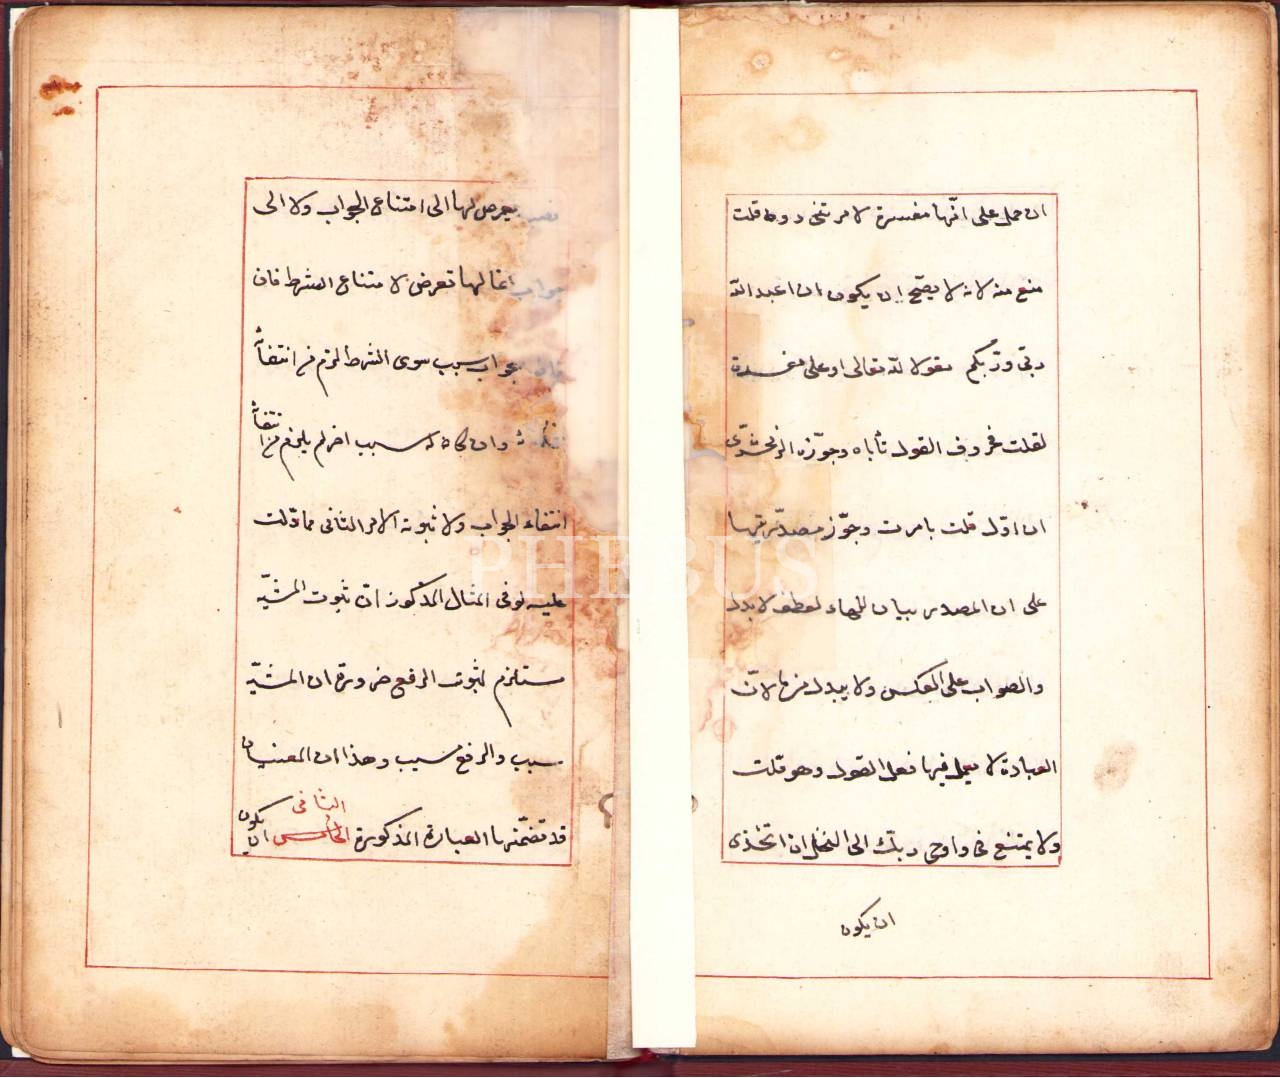 ان حمل على انّها مفسرة لامرتنى دون قلت
منع منه لانه لا يصّح ان يكون ان اعبد الله
ربّى وربكم مقولا لله تعالى او على مفسدة
لقلت فحروف القول تأباه وجوّزه الزمخشرّى
ان اوّل قلت بامرت وجوّز مصدرّيتها
على ان المصدر بيان للهاء لعطف لا بدل
والصواب على العكس ولا يبدل منها لانّ
العبادة لا يعمل فيها فعل القول وهو قلت
ولا يمتنع فى واوحى ربّك الى النحل ان اتخذى
ان يكون
يعرض لها الى امتناع الجواب ولا الى
انما لها تعرض لامتناع الشرط فان
لجواب سبب سوى الشرط لزم من انتفائه
وان كان له سبب اخر لم يلزم من انتفائه
انتفاء الجواب ولا ثبوته الامر الثانى مما دّلت
عليه لو فى المثال المذكور انّ ثبوت المشيّة
مستلزم لثبوت الرفع ضرورة ان المشيّة
سبب والرفع مسبب وهذا ان المعنيان
قد تضمّنتها العبارة المذكورة الثانى الخامس ان يكون
PHEBUS